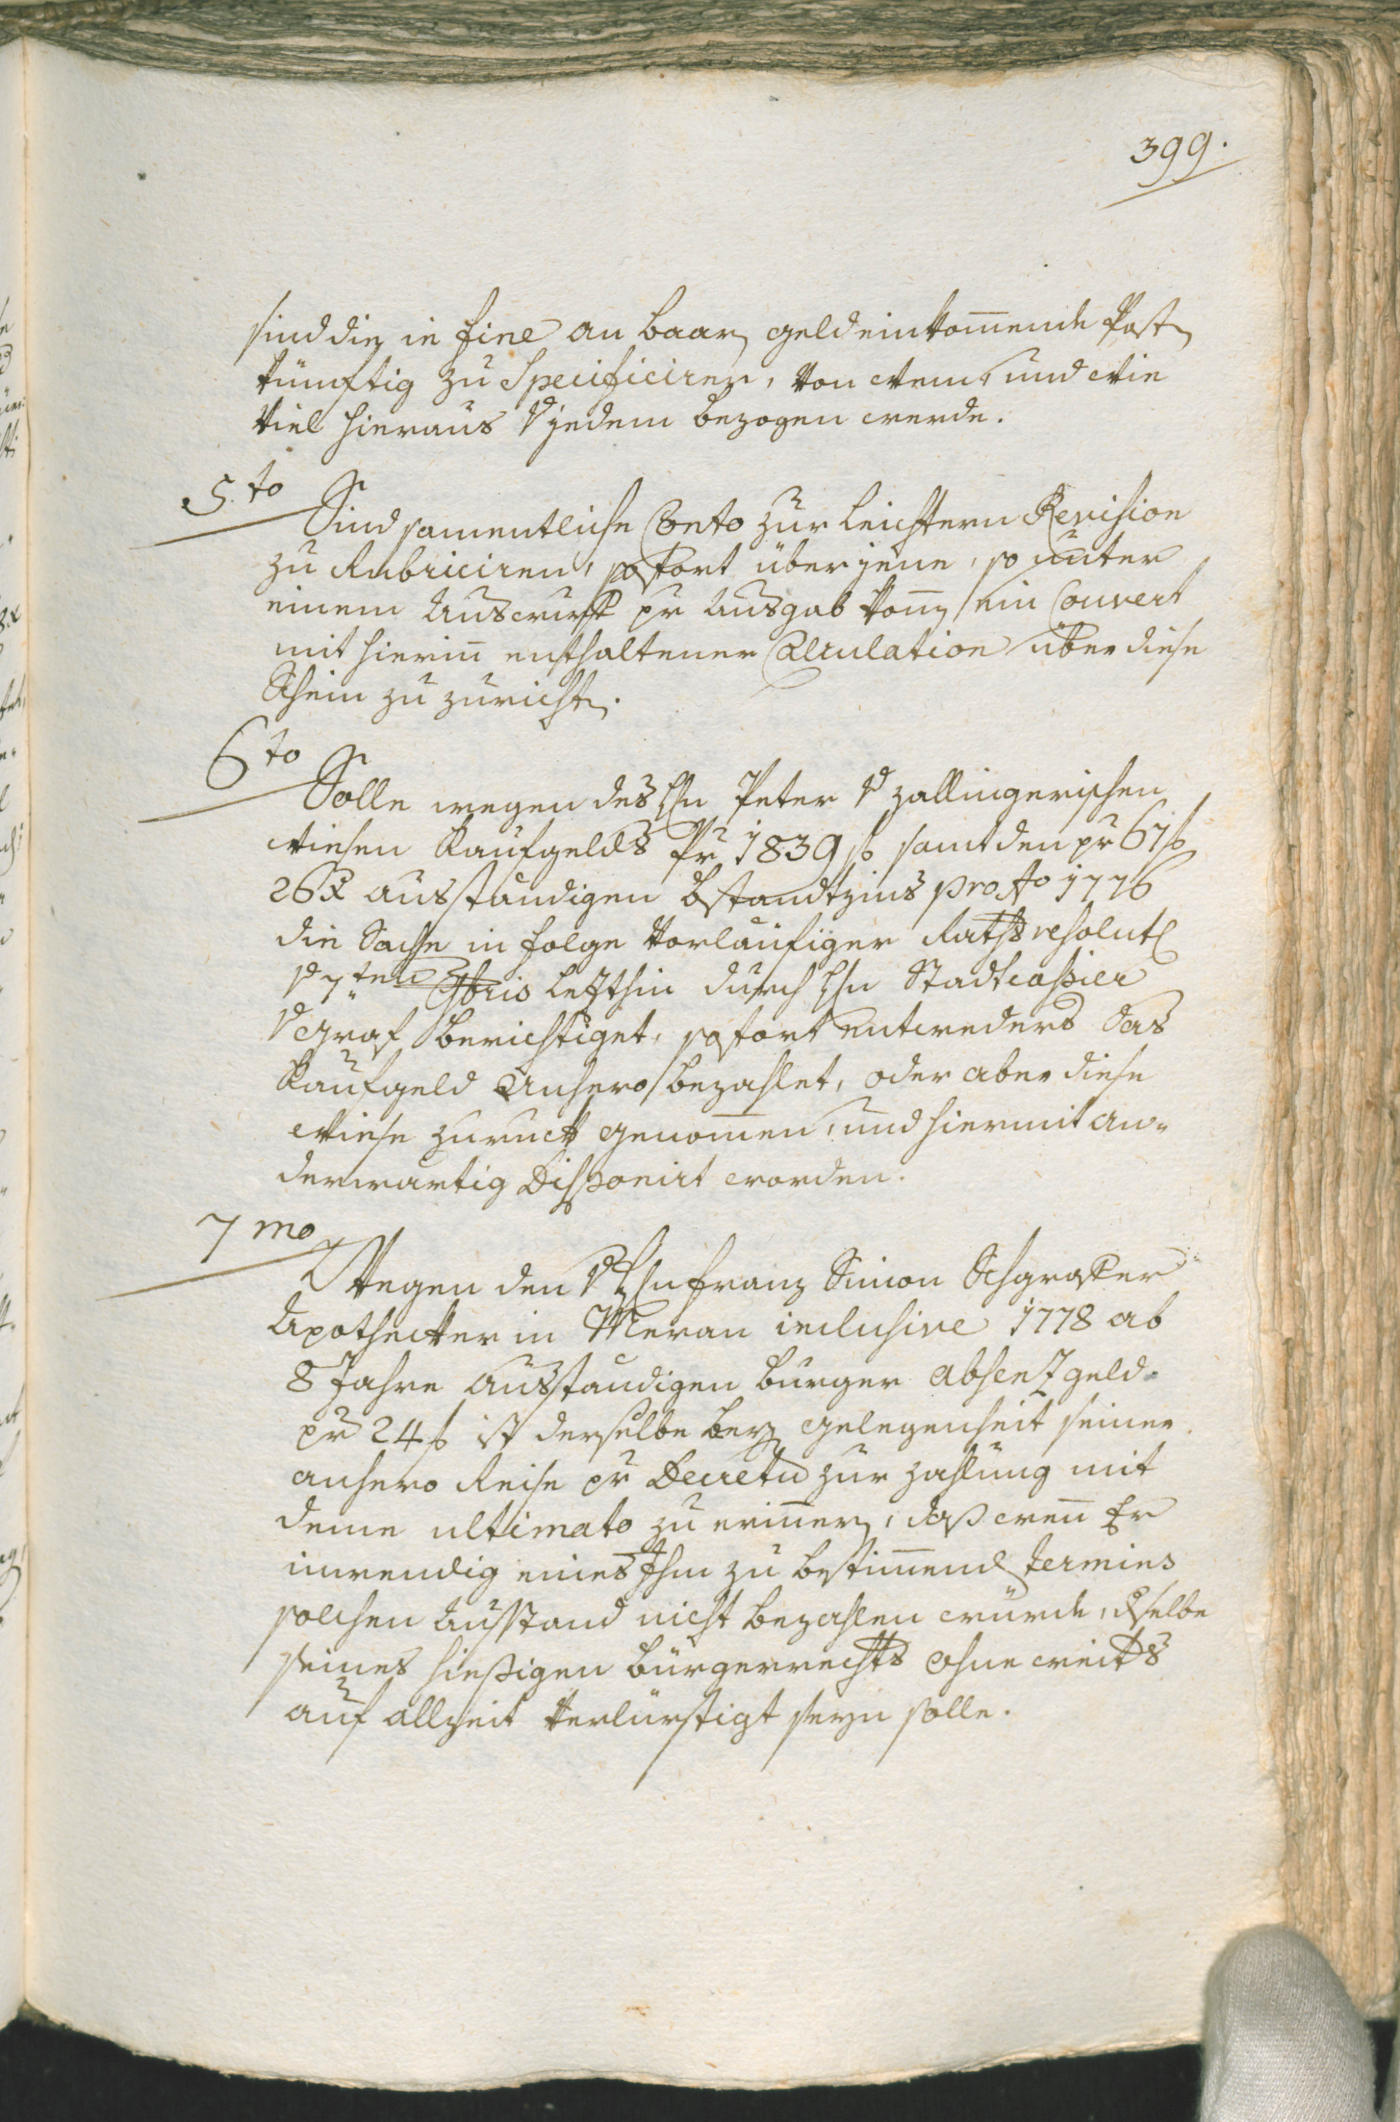 399.
sind die in fine an baar geld einkom̅ende Post
künftig zu Specificiren, von wem, und wie
viel hieraus v jedem bezogen werde.
5.to
Sind samentliche Conto zur leichtern Revision
zu Rubriciren, sofort über jene, so unter
einem Auswurf pr Ausgab kom̅ ein Couvert
mit hierin̅ enthaltener Calculation über diese
Schein zu zuricht.
6to
Solle wegen des Hn Peter v zallingerischen
wiesen Kaufgelds pr 1839 f samt den pr 67 f
26 x ausständigen bstandtzins pro Ao 1776
die Sache in folge vorläufiger Raths resolut
v 7ten bris lezthin durch Hn Stadtcaßier
v Graf berichtiget, sofort entweders das
Kaufgeld Anhero bezahlet, oder aber diese
wiese zuruck genom̅en, und hiermit an-
derwärtig Disponirt worden.
7mo
Wegen den v Hn franz Simon Schgraffer
Apothecker in Meran inclusive 1778 ab
8 Jahre ausständigen burger absenz geld
pr 24 f ist derselbe bey gelegenheit seiner
anhero Reise pr Decretu zur zahlung mit
deme ultimato zu erin̅ern, daß wen̅ Er
inwendig eines Ihm zu bestim̅end termins
solchen Ausstand nicht bezahlen würde, dselbe
seines hießigen bürgerrechts ohne weiters
auf allzeit verlürstigt seyn solle.